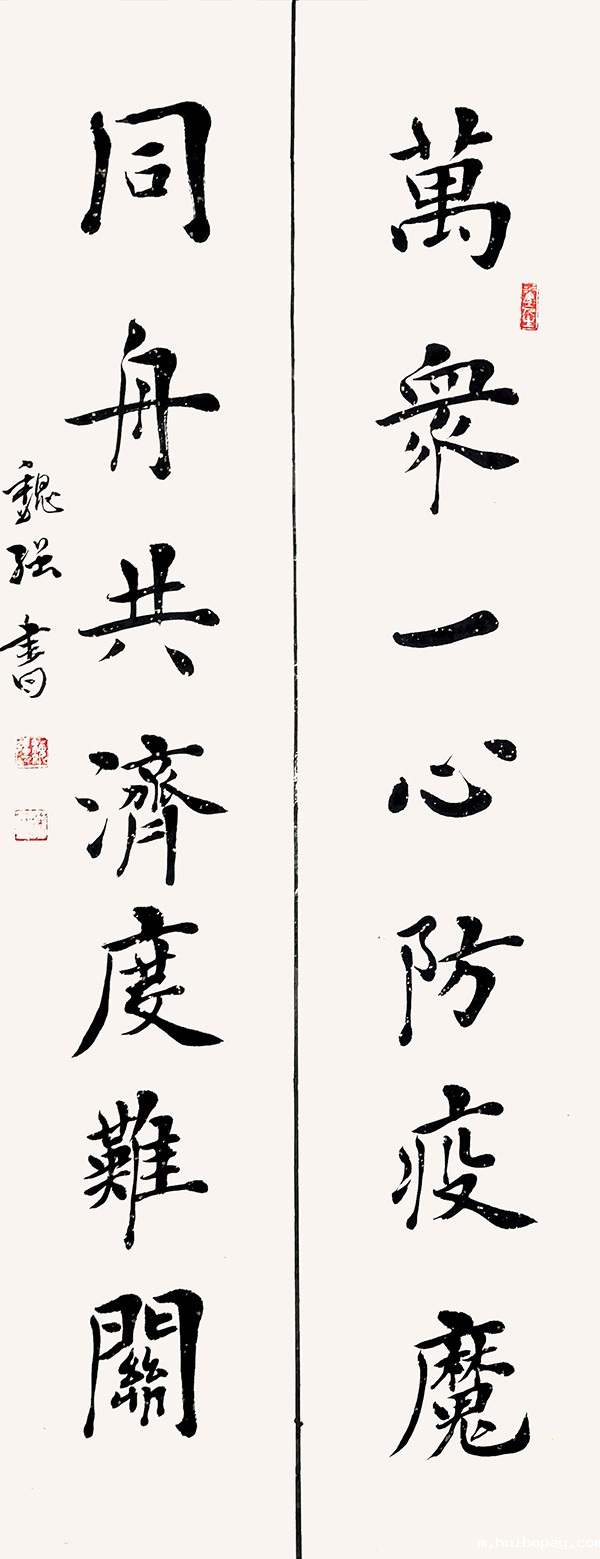 萬衆一心防疫魔
同舟共濟度難關
魏强書
m.huibopay.com